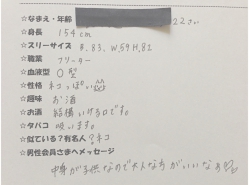 ☆なまえ・年齢 22さい
☆身長 154cm
☆スリーサイズ B.83、W.59 H.82
☆職業 フリーター
☆血液型 O型
☆性格 ネコっぽい
☆趣味 お酒
☆お酒 結構いける口です。
☆タバコ 吸います。
☆似ている?有名人?ネコ
☆男性会員さまへメッセージ
中身が子供なので大人な方がいいなぁ